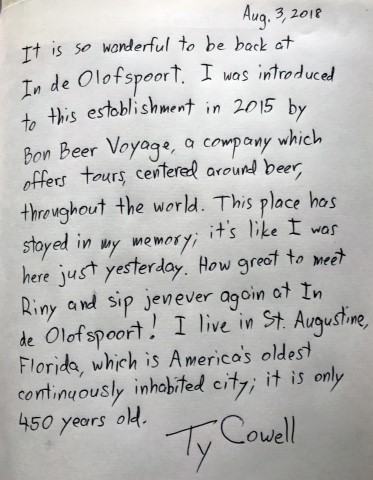 Aug. 3, 2018
It is so wonderful to be back at
In de Olofspoort. I was introduced
to this establishment in 2015 by
Bon Beer Voyage, a company which
offers tours, centered around beer,
throughout the world. This place has
stayed in my memory; it's like I was
here just yesterday. How great to meet
Riny and sip jenever again at In
de Olofspoort! I live in St. Augustine,
Florida, which is America's oldest
continuously inhabited city; it is only
450 years old.
Ty Cowell